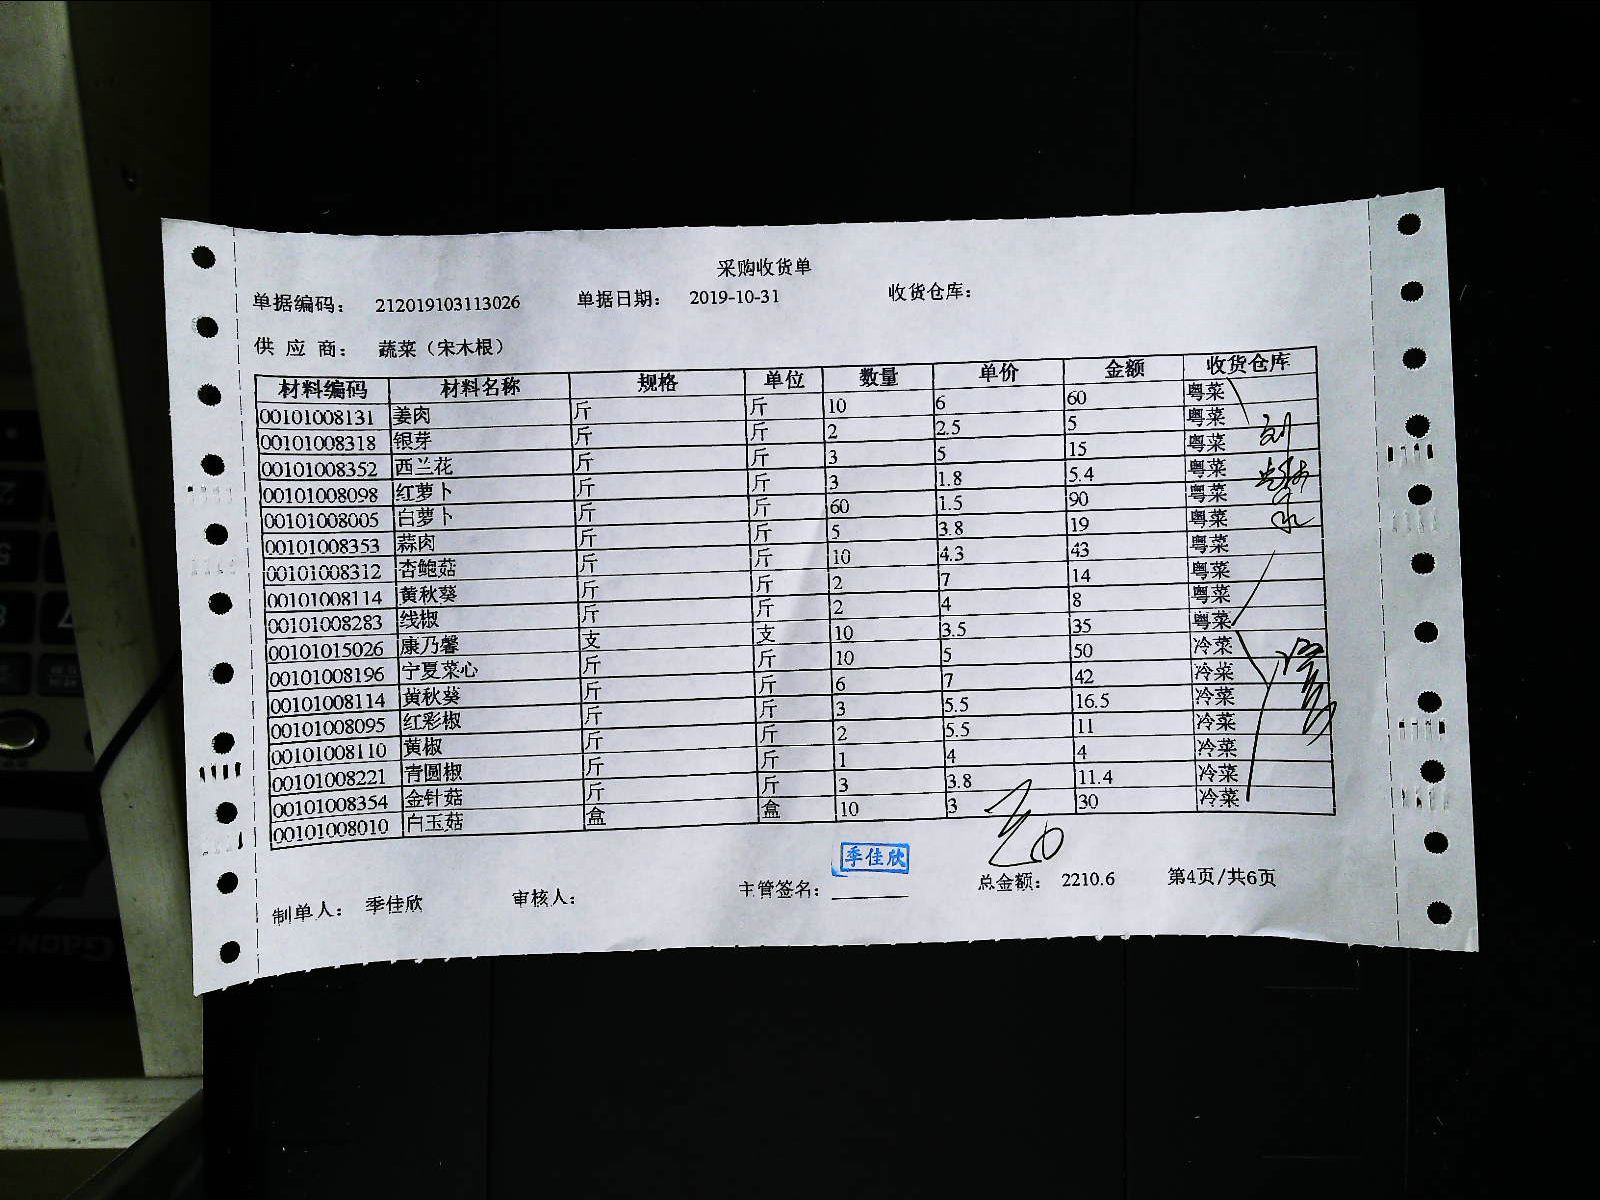 采购收货单
单据编码： 212019103113026 单据日期： 2019-10-31 收货仓库：
供 应 商： 蔬菜（宋木根）
材料编码 材料名称 规格 单位 数量 单价 金额 收货仓库
00101008131 姜肉 斤 斤 10 6 60 粤菜
00101008318 银芽 斤 斤 2 2.5 5 粤菜
00101008352 西兰花 斤 斤 3 5 15 粤菜
00101008098 红萝卜 斤 斤 3 1.8 5.4 粤菜
00101008005 白萝卜 斤 斤 60 1.5 90 粤菜
00101008353 蒜肉 斤 斤 5 3.8 19 粤菜
00101008312 杏鲍菇 斤 斤 10 4.3 43 粤菜
00101008114 黄秋葵 斤 斤 2 7 14 粤菜
00101008283 线椒 斤 斤 2 4 8 粤菜
00101015026 康乃馨 支 支 10 3.5 35 粤菜
00101008196 宁夏菜心 斤 斤 10 5 50 冷菜
00101008114 黄秋葵 斤 斤 6 7 42 冷菜
00101008095 红彩椒 斤 斤 3 5.5 16.5 冷菜
00101008110 黄椒 斤 斤 2 5.5 11 冷菜
00101008221 青圆椒 斤 斤 1 4 4 冷菜
00101008354 金针菇 斤 斤 3 3.8 11.4 冷菜
00101008010 白玉菇 盒 盒 10 3 30 冷菜
季佳欣
制单人： 季佳欣 审核人： 主管签名： 总金额： 2210.6 第4页/共6页